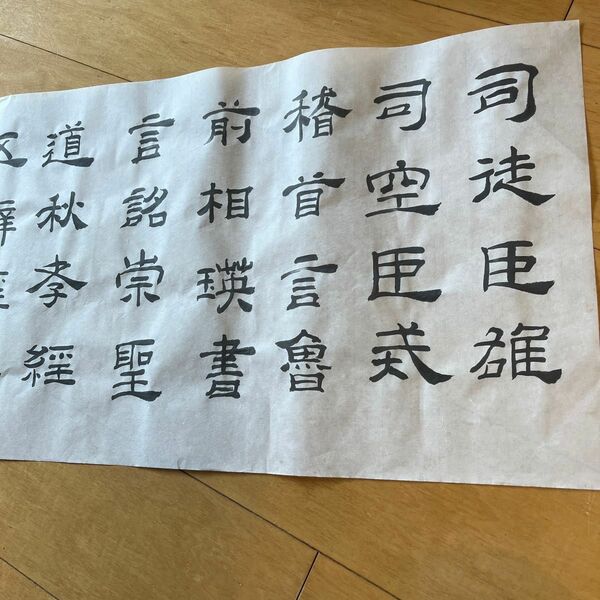 司徒臣雄
司空臣戒
稽首言魯
前相瑛書
言詔崇聖
道秋孝經